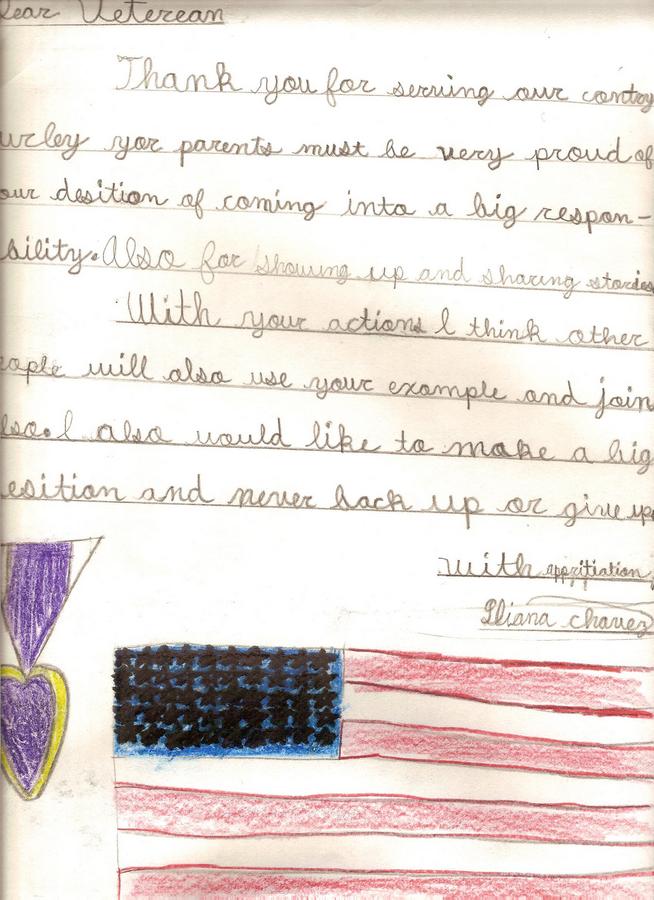 ear Veterean
Thank you for serving our contry
urley yor parents must be very proud of
our desition of coming into a big respon-
sibility. Also for showing up and sharing stories
With your actions I think other
eople will also use your example and join
lso. I also would like to make a big
esition and never back up or give up
with appritiation
Iliana chavez